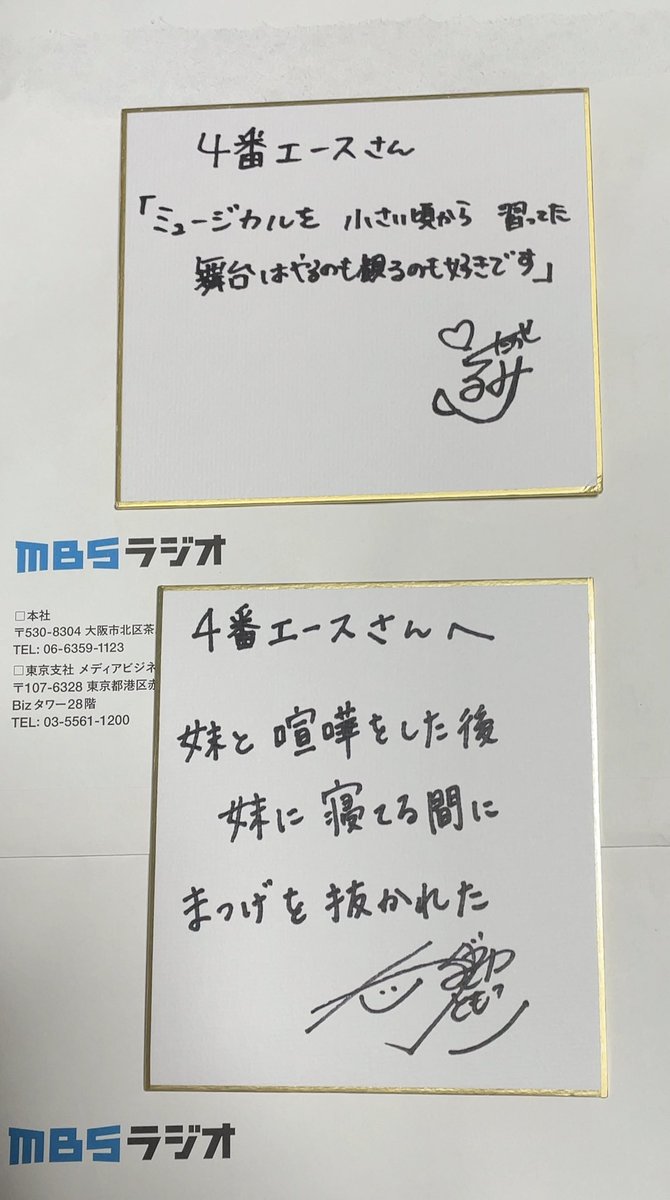 4番エースさん
「ミュージカルを 小さい頃から 習ってた
舞台はやるのも観るのも好きです」
るみ
MBSラジオ
□本社
〒530-8304 大阪市北区茶
TEL: 06-6359-1123
□東京支社 メディアビジネ
〒107-6328 東京都港区赤
Bizタワー28階
TEL: 03-5561-1200
4番エースさんへ
妹と 喧嘩をした後
妹に 寝てる間に
まつげを 抜かれた
MBSラジオ